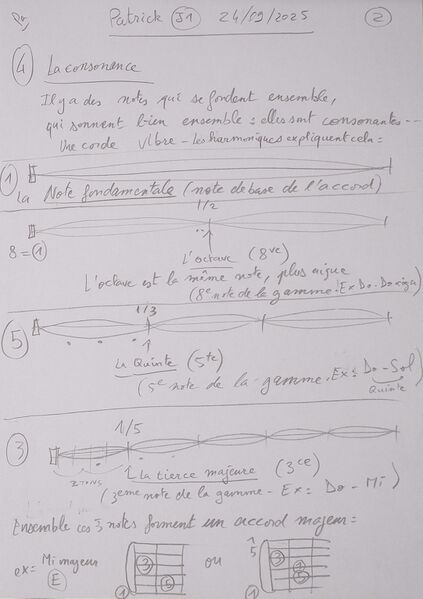 Patrick J1 24/09/2025 2
4 La consonance
Il y a des notes qui se fondent ensemble,
qui sonnent bien ensemble : elles sont consonantes--
Une corde vibre - les harmoniques expliquent cela =
1
La Note fondamentale (note de base de l'accord)
1/2
8 = 1
L'octave (8ve)
L'octave est la même note, plus aigue
(8e note de la gamme. Ex Do - Do
1/3
5
La Quinte (5te)
(5e note de la gamme. Ex = Do - Sol
Quinte
1/5
3
2 TONS
La tierce majeure (3ce)
(3eme note de la gamme - Ex = Do - Mi)
Ensemble ces 3 notes forment un accord majeur =
ex = Mi majeur
E
3
5
1
ou
1
5
3
1
5
1